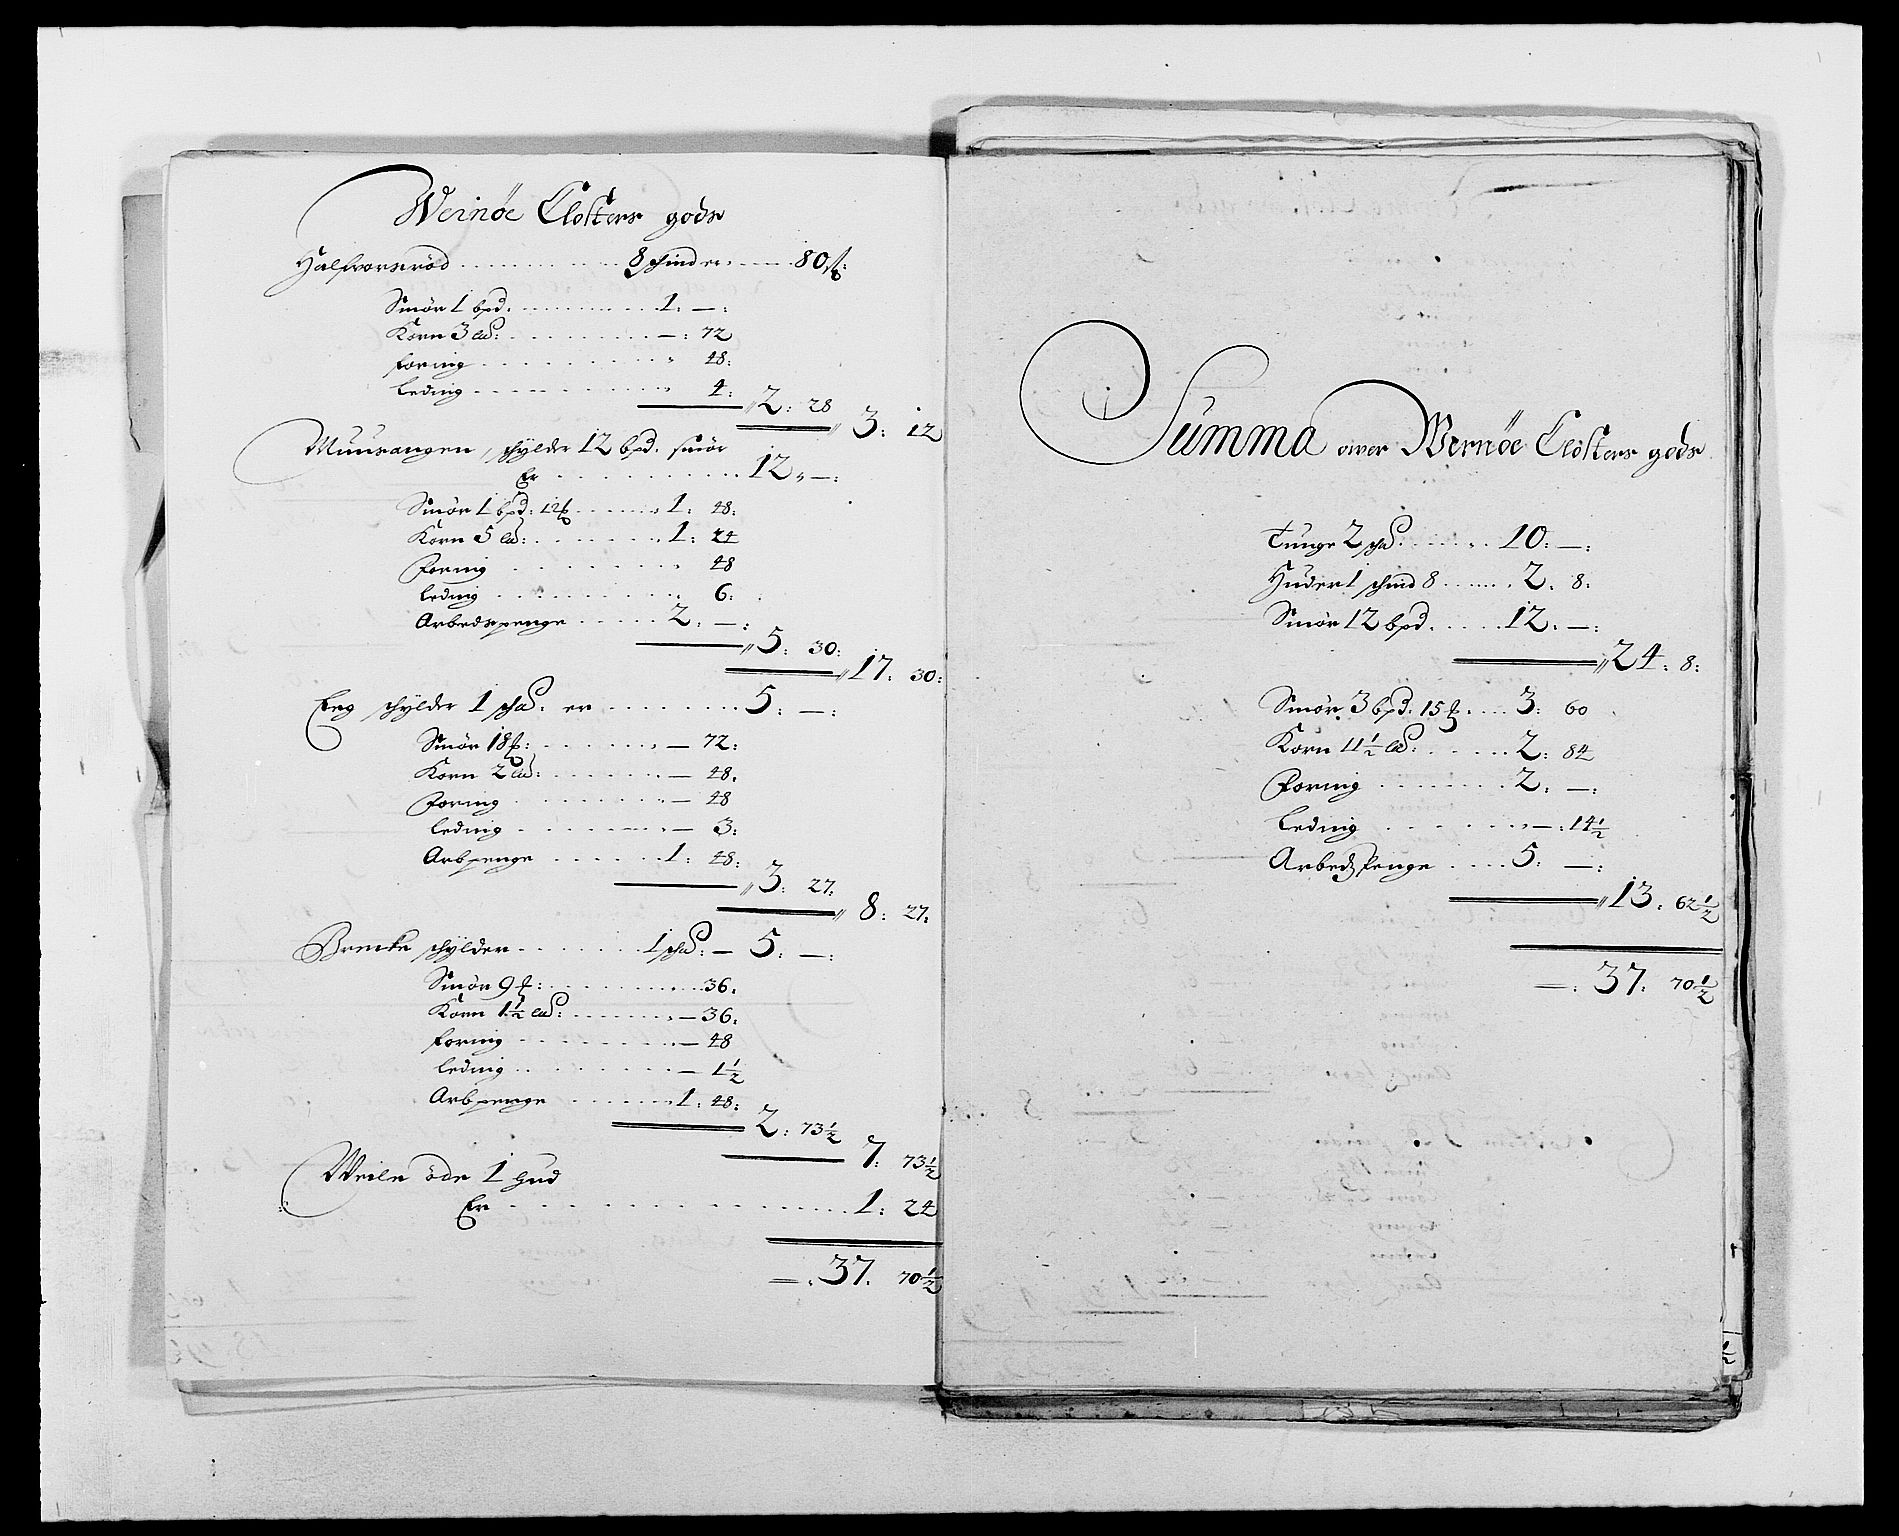 Wernøe Closters gods
Halfvorsrød 8 schinder 80 ß:
Smör 1 bpd. 1: —:
Korn 3 lad: —: 72
foring 48:
leding 4:
2: 28
3: 12
Muusangen, schylder 12 bpd. smör
Er 12. —:
Smör 1 bpd: 12 ℔ 1: 48:
Korn 5 lad: 1: 24
Foring 48
leding 6:
Arbedspenge 2. —:
5: 30:
17: 30:
Eeg schylder 1 schd. er 5: —:
Smör 18 ℔: — 72:
Korn 2 lad: — 48.
Foring — 48
leding — 3:
Arbpenge 1: 48:
3: 27:
8: 27.
Brecke schylder 1 schd: — 5: —:
Smör 9 ℔: 36.
Korn 1½ lad: — 36:
foring — 48
leding — 1½
Arbpenge 1: 48:
2: 73½
7: 73½
öde 1 hud
Er 1: 24
—: 37. 70½
Summa over Wernøe Closters gods
Tunge 2 schd. 10: —:
Huder 1 schind 8 2. 8:
Smör 12 bpd. 12. —:
24: 8:
Smör. 3 bpd. 15 ℔. 3: 60
Korn 11½ lad: 2: 84
Foring 2. —:
leding —: 14½
Arbedspenge 5: —:
13: 62½
—: 37: 70½